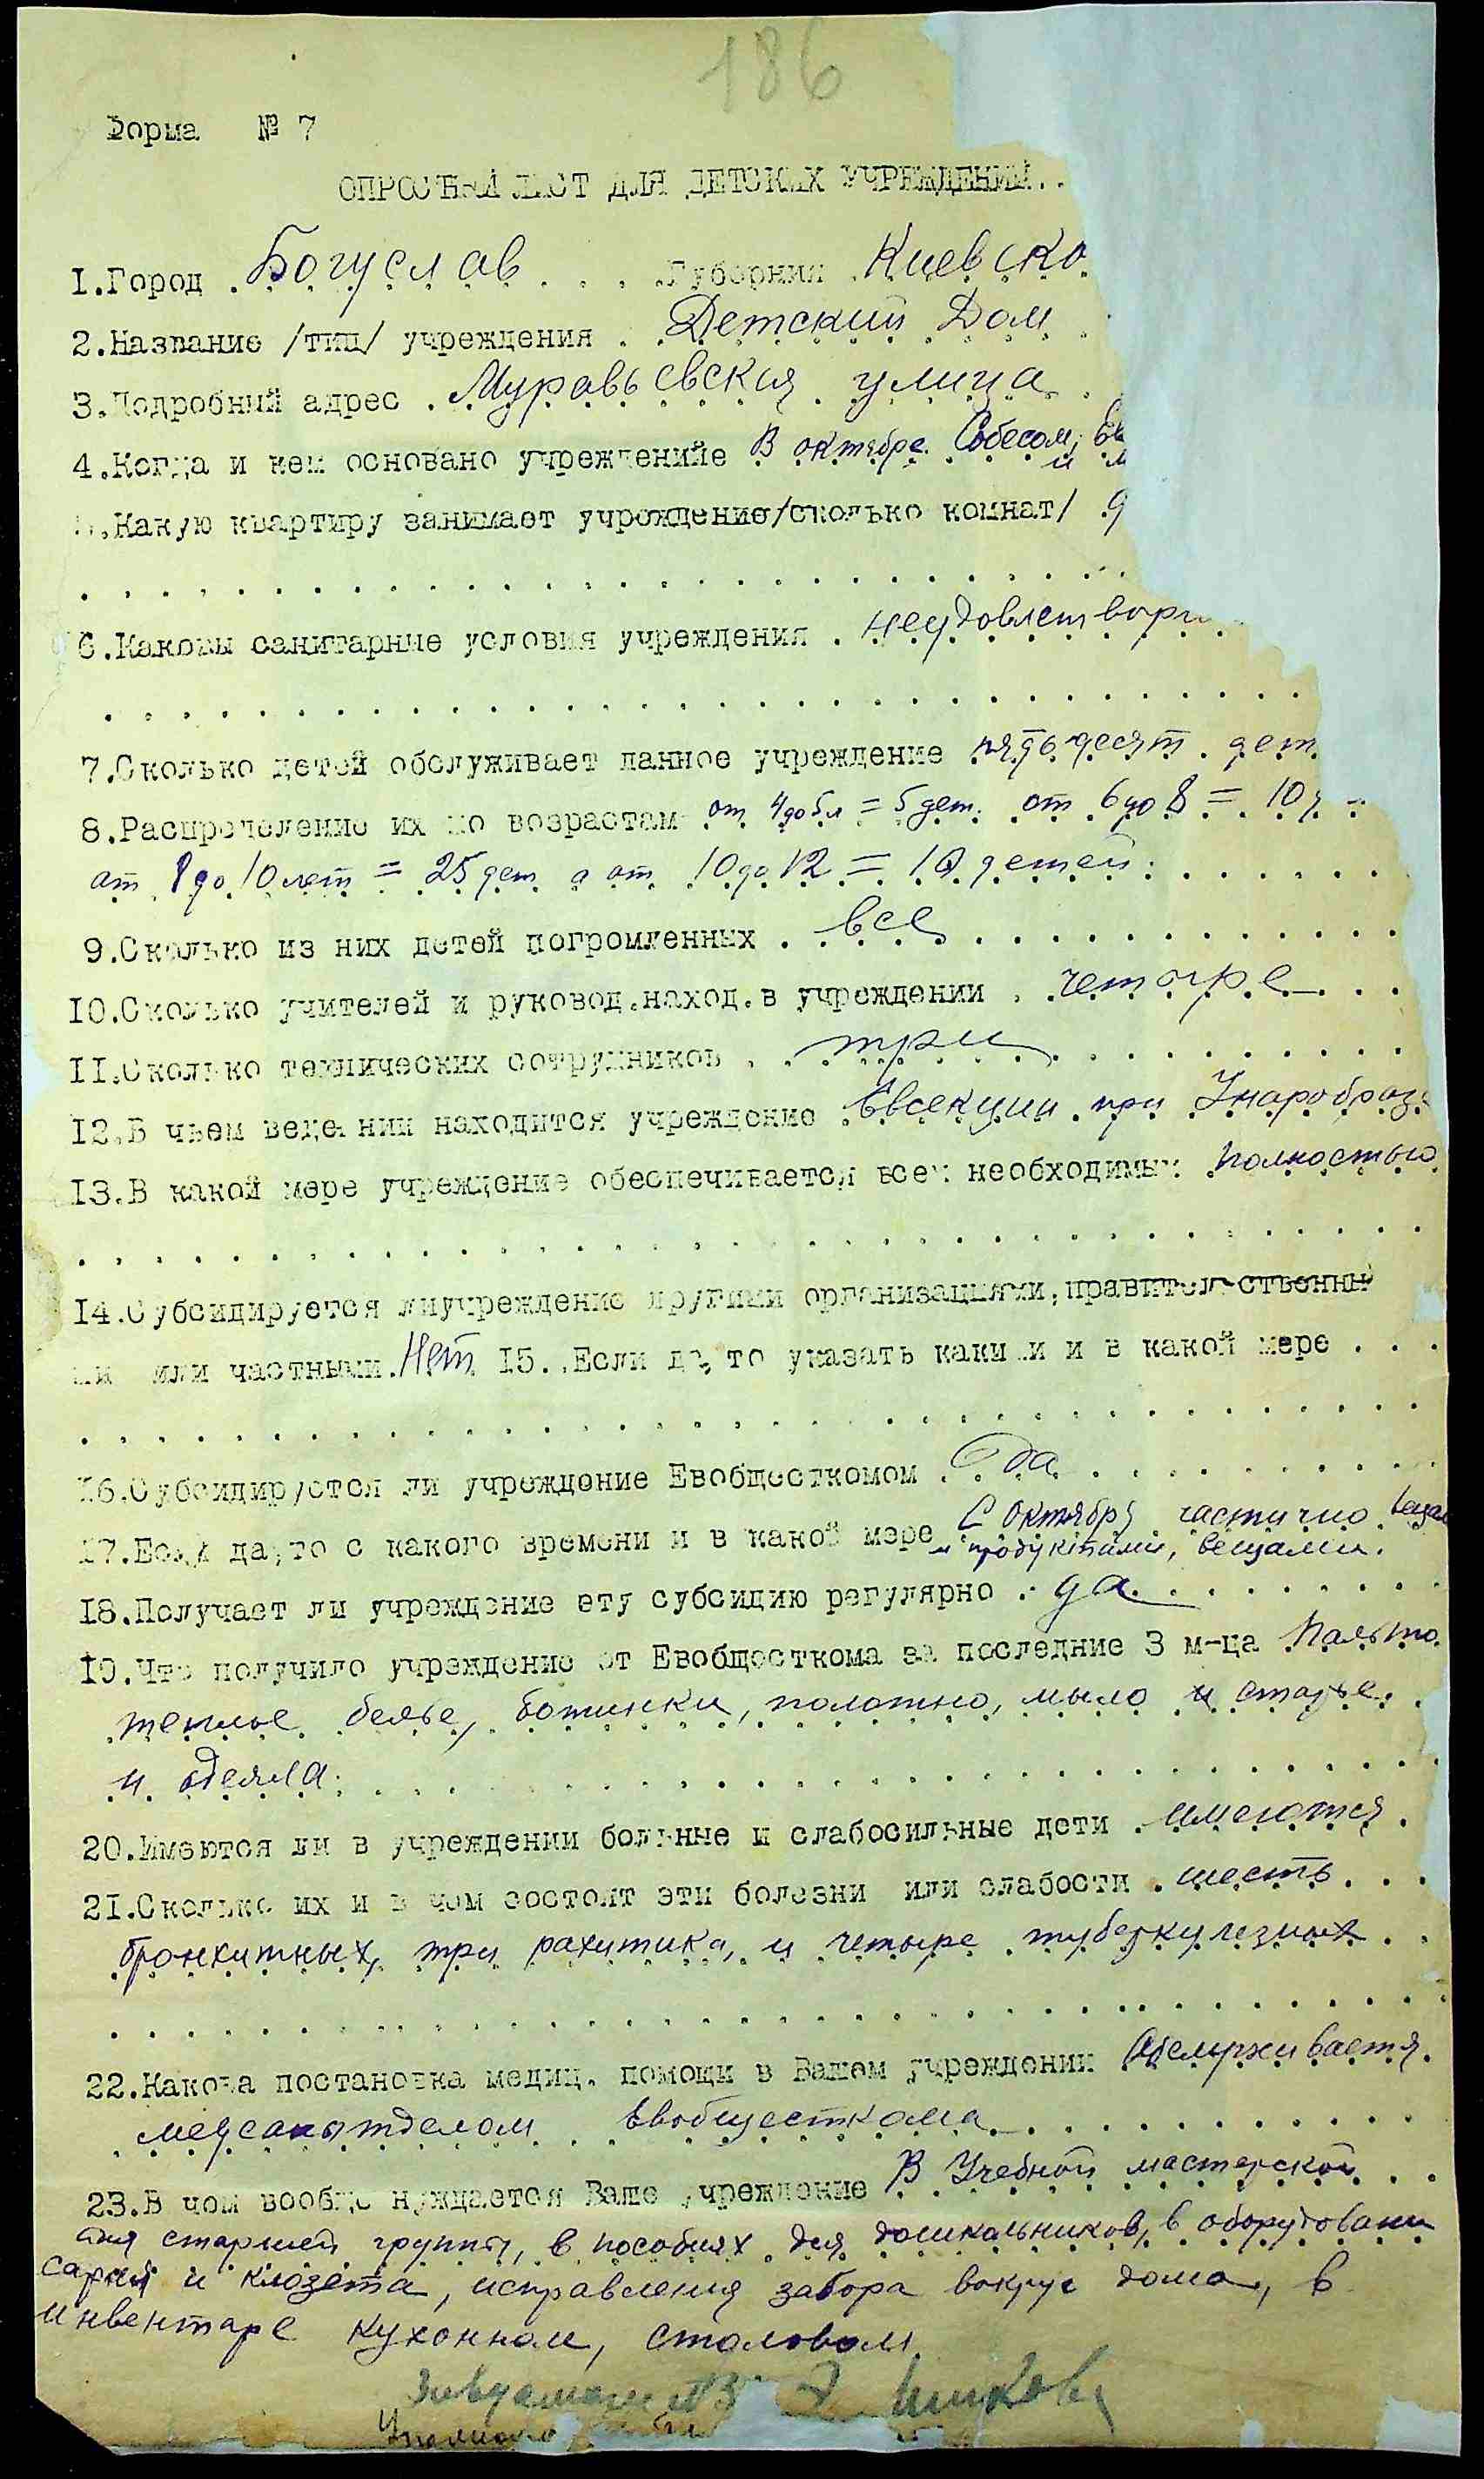 186
Форма № 7
ОПРОСНЫЙ ЛИСТ ДЛЯ ДЕТСКИХ УЧРЕЖДЕНИЙ..
1.Город . Богуслав . . . .Губерния . Киевско
2.Название /тип/ учреждения . Детский Дом .
3.Подробный адрес . Муравьевская улица . .
4.Когда и кем основано учрежденийе В октябре Собесом,
5.Какую квартиру занимает учреждение/сколько комнат/ .9
6.Каковы санитарные условия учреждения . неудовлетвори
7.Сколько детей обслуживает данное учреждение пятьдесят дет
8.Распределение их по возрастам от 4 до 6 л = 5 дет. от 6 до 8 = 10 д
от 8 до 10 лет = 25 дет а от 10 до 12 = 10 детей . . . . . . .
9.Сколько из них детей погромленных . все . . . . . . . . . . . .
10.Сколько учителей и руковод.наход.в учреждении . четыре . . .
11.Сколько технических сотрудников . . три . . . . . . . . . .
12.В чьем ведении находится учреждение . Евсекции при Унаробраз
13.В какой мере учреждение обеспечивается всем необходимым полностью
14.Субсидируется лиучреждение другими организациями,правительственны
ми или частными. Нет 15..Если да,то указать какими и в какой мере . . .
16.Субсидируется ли учреждение Евобщесткомом . Да . . . . . . . . . .
17.Если да,то с какого времени и в какой мере С октября частично
и продуктами, вещами.
18.Получает ли учреждение ету субсидию регулярно . да . . . . . . . .
19.Что получило учреждение от Евобщесткома за последние 3 м-ца Пальто
теплое белье, ботинки, полотно, мыло и старье .
и одеяла . . . . . . . . . . . . . . . . . . . .
20.Имеются ли в учреждении больные и слабосильные дети . имеются .
21.Сколько их и в чем состоит эти болезни или слабости . шесть . . .
бронхитных, три рахитика, и четыре туберкулезных . .
22.Какова постановка медиц. помощи в Вашем учреждении Обслуживается
медсанотделом Евобщесткома . . . . . . . . . . .
23.В чом вообще нуждается Ваше учреждение В Учебной мастерской . .
для старшей группы, в пособиях для дошкольников, в оборудовании
сарая и клозета, исправления забора вокруг дома, в
инвентаре кухонном, столовом.